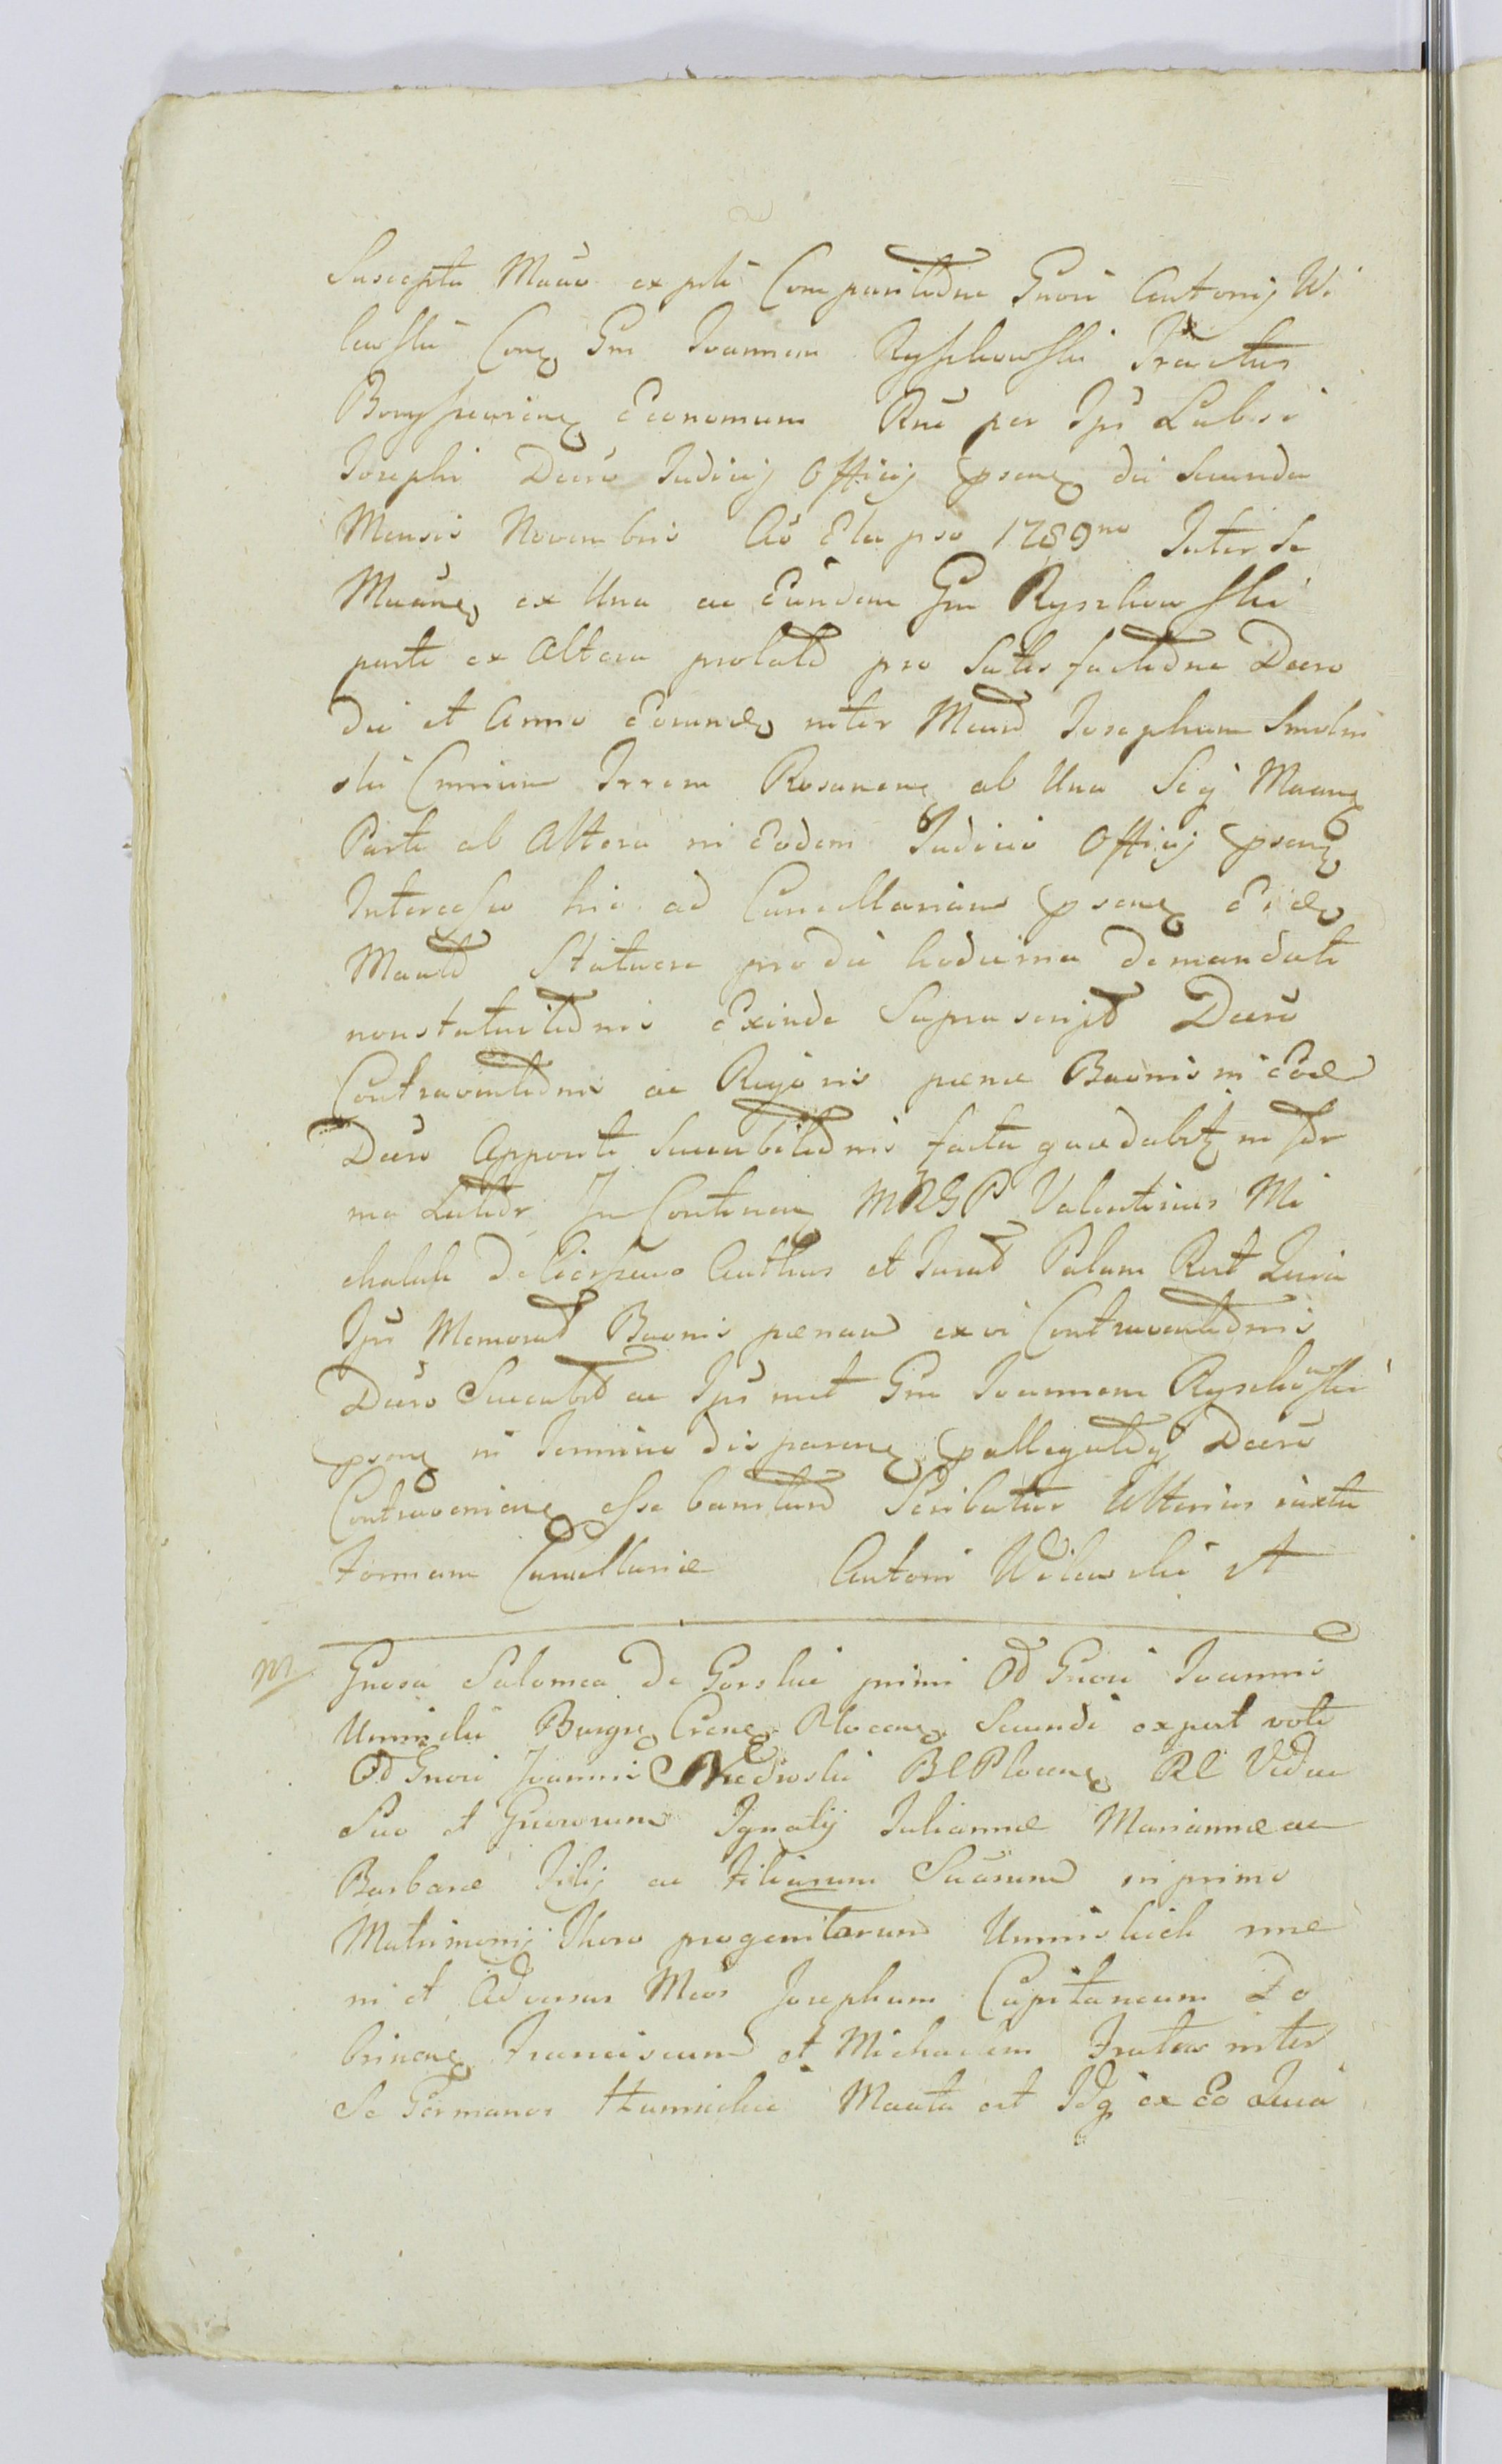 Suscepta Maao ex pste Comparitione Gnosi Antonij Wi
lewski Cong Gm Joannem Ryszkowski Tractus
Economum Rne per Ips
Josephi Decro Judicij Officij pseng die Secunda
Mensis Novembris Ao Elapso 1789no Inter Se
Maang ex Una ac Eundem Gm Ryszkowski
parte ex Altera prolato pro Satisfactione Decro
die et Anno Eorund inter Maand Josephum Smolin
ski Cmrium Trrem Rosaneng ab Una Seq Maang
Parte ab Altera in Eodem Judicio Officij pseng
Intercesso hic ad Cancellariam pseng Eid
Maato Statuere pro die hodierna demandati
nonstatuitionis Exinde Suprascript Decro
Contraventionis ac Rigoris penae Baonis in Eod
Decro Apposite Succubitionis facta gaudabit in For
ma Latior In Contineng MRGP Valentinus Mi
chalak De Authus et Jurat Palam Rct Quia
Ips Memorat Baonis penam ex vi Contraventionis
Decro Succubit ac Ips met Gm Joannem Ryszkowski
pseng in Termino dis pareng pallegatoq Decro
Contravenieng esse banitum Scribatur Ulterius iuxta
Formam Cancellariae Antoni Wilewski A
m Gnosa Salomea de Gorskie primi Od Gnosi Joannis
Uminski Burgr Creng Ploceng Secundi expert voti
Od Gnosi Joannis BCPloceng RC Vidua
Suo et Gnosorum Ignatij Julianne Marianne ac
Barbare Filij ac Filiarum Suarum in primo
Matrimonij Thoro progenitarum Uminskich nne
ni et Adversus Mcos Josephum Capitaneum Do
brineng Franciscum et Michaelem Fratres inter
Se Germanos Humieckie Maata est Idq ex Eo Quia